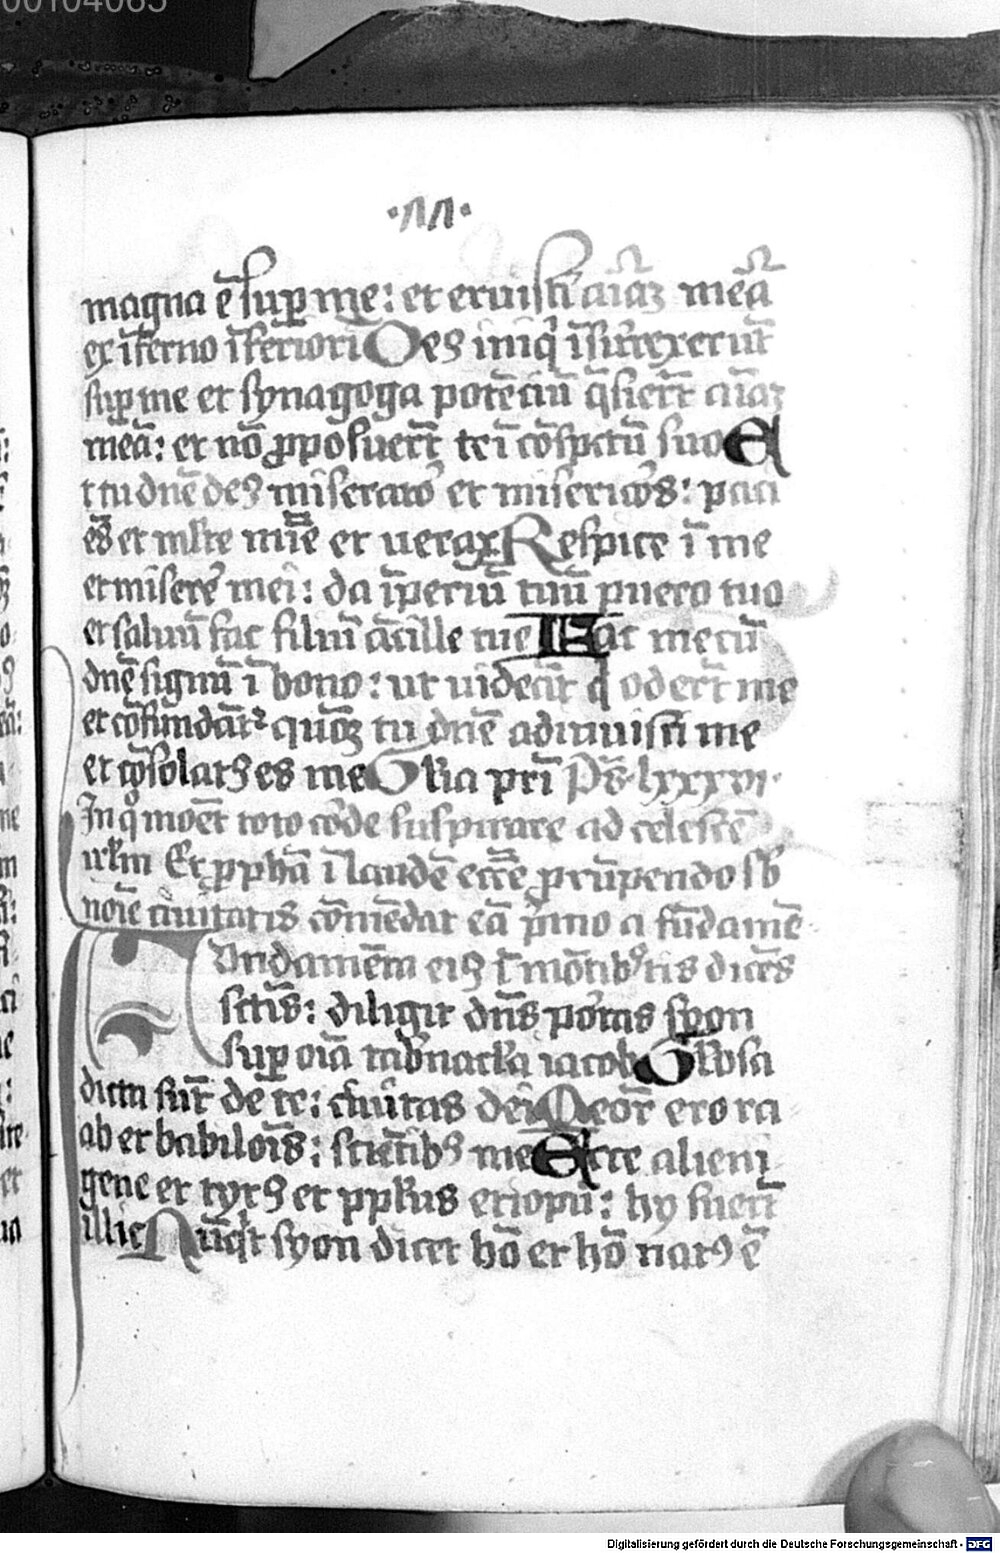 00104065
magna ē sup me: et eruisti aīaȝ meā
ex īferno īferiori Oēs iniq̄ īsurrexerūt
sup me et synagoga potētiū q̄sierūt aīaȝ
meā: et nō ꝓposuerūt te ī cōspectu suo E
t tu dn̄e deꝰ miserator et misericors: paciēs
et mlte mīe et verax Respice ī me
et miserē mei: da īperiū tuū puero tuo
et saluū fac filiū ācille tue Fac mecū
dn̄e signū ī bono: ut videāt q̄ oderūt me
et cōfundāt̄ quoȝ tu dn̄e adiuuisti me
et cōsolatꝰ es me Glia pri Ps̄ lxxxvi
In q̊ monet toto corde suspirare ad celestē
irl̄m Et ꝓphā ī laudē eccē ꝓrūpendo sb
noīe ciuitatis cōmēdat eā p̄mo a fūdamē
Fundamēta eiꝰ ī mōtibꝰ
sctīs: diligit dn̄s portas syon
sup oīa tabnacl̄a iacob Gl̄osa
dicta sūt de te: ciuitas dei Meor̄ ero ra
ab et babilonis: sciētibꝰ me Ecce alieni
gene et tyrꝰ et ppl̄us etiopū: hy fuerūt
illic Nūqd syon dicet hō et hō natꝰ ē
Digitalisierung gefördert durch die Deutsche Forschungsgemeinschaft - DFG